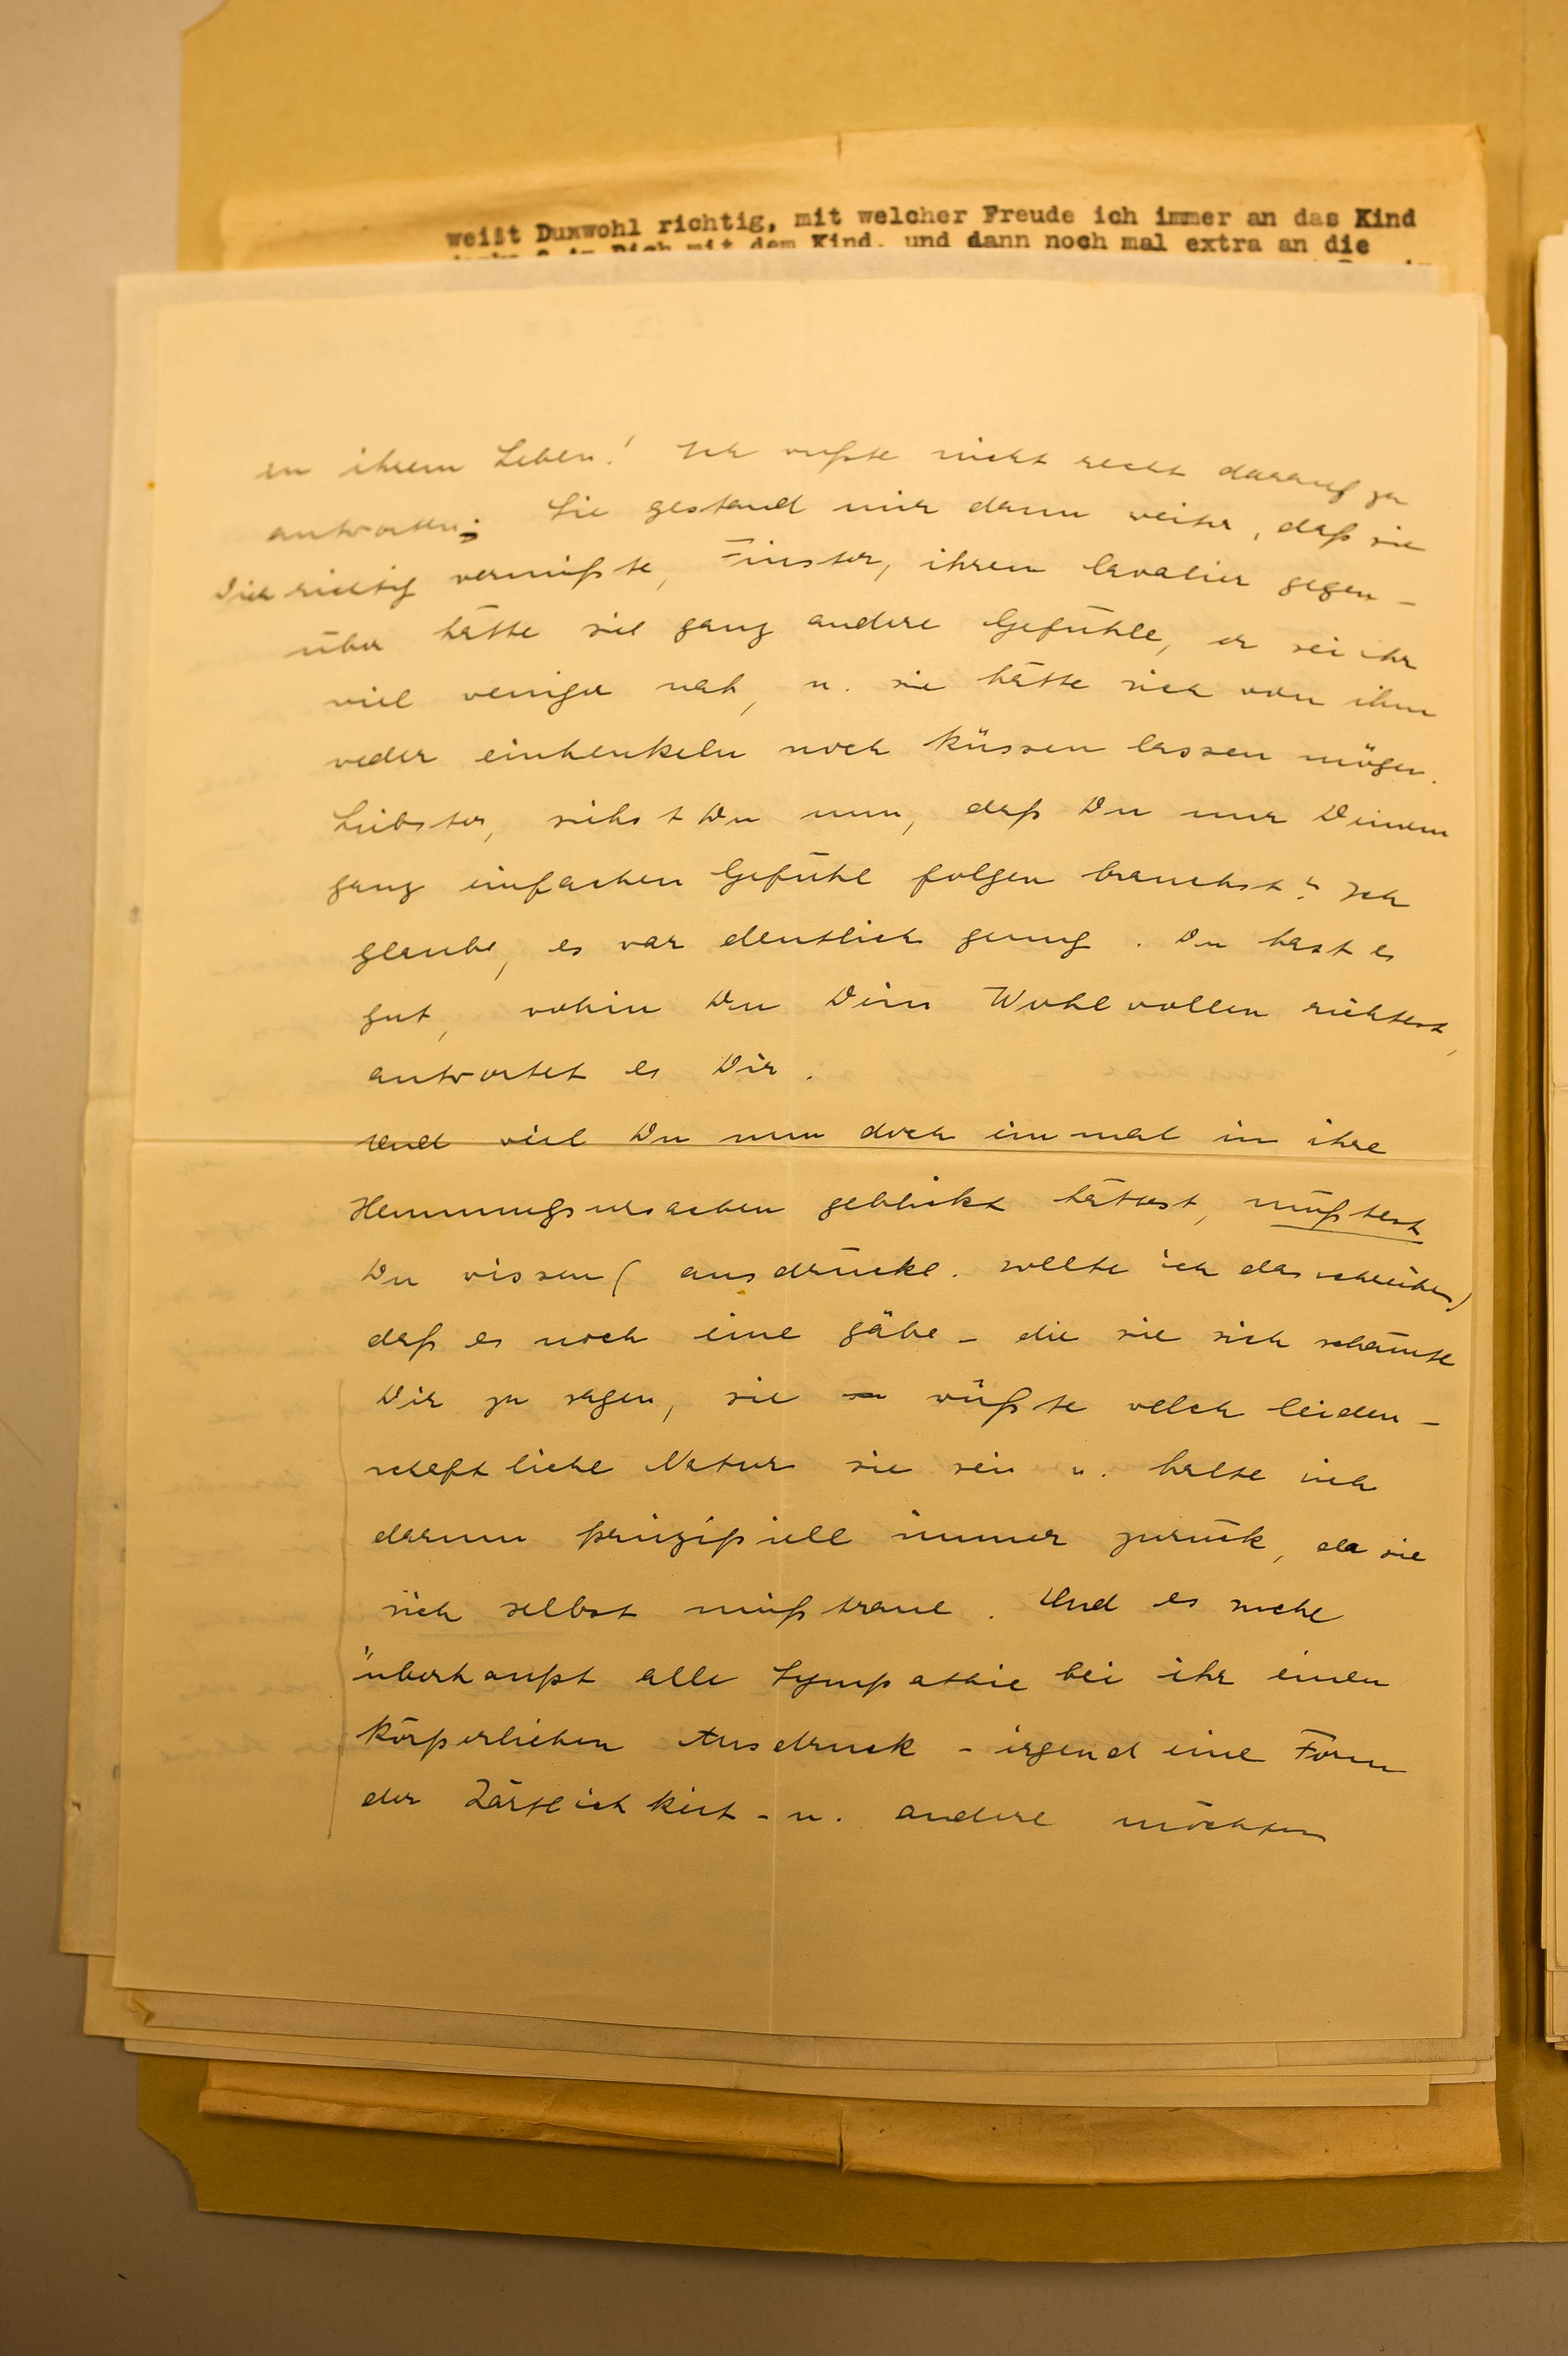 weißt Duxwohl richtig, mit welcher Freude ich immer an das Kind
mit dem Kind, und dann noch mal extra an die
in ihrem Leben! Ich wußte nicht recht darauf zu
antworten; Sie gestand mir dann weiter, daß sie
Dich richtig vermißte, Finster, ihrem Cavalier gegen-
über hätte sie ganz andere Gefühle, er sei ihr
viel weniger nah, u. sie hätte sich von ihm
weder einhenkeln noch küssen lassen mögen.
Liebster, siehst Du nun, daß Du nur Deinem
ganz einfachen Gefühl folgen brauchst? Ich
glaube, es war deutlich genug. Du hast es
gut, wohin Du Dein Wohlwollen richtest,
antwortet es Dir.
Und weil Du nun doch einmal in ihre
Hemmungsursachen geblickt hättest, müßtest
Du wissen (ausdrückl. sollte ich das schreiben)
daß es noch eine gäbe - die sie sich schämte
Dir zu sagen, sie wüßte welch leiden-
schaftliche Natur sie sei u. halte sich
darum prinzipiell immer zurück, da sie
sich selbst mißtraue. Und es suche
überhaupt alle Sympathie bei ihr einen
körperlichen Ausdruck - irgend eine Form
der Zärtlichkeit - u. andere möchten